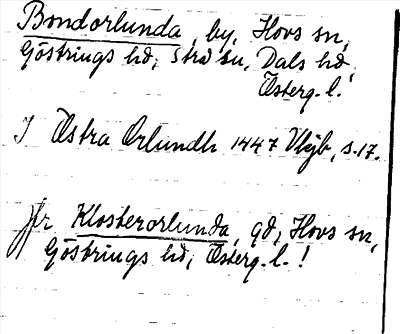 Bondorlunda, by, Hovs sn,
Göstrings hd, Stra sn, Dals hd,
Österg. l.!
I Östra Orlundh 1447 Vkjb, s. 17.
Jfr Klosterorlunda, gd, Hovs sn,
Göstrings hd, Österg. l.!